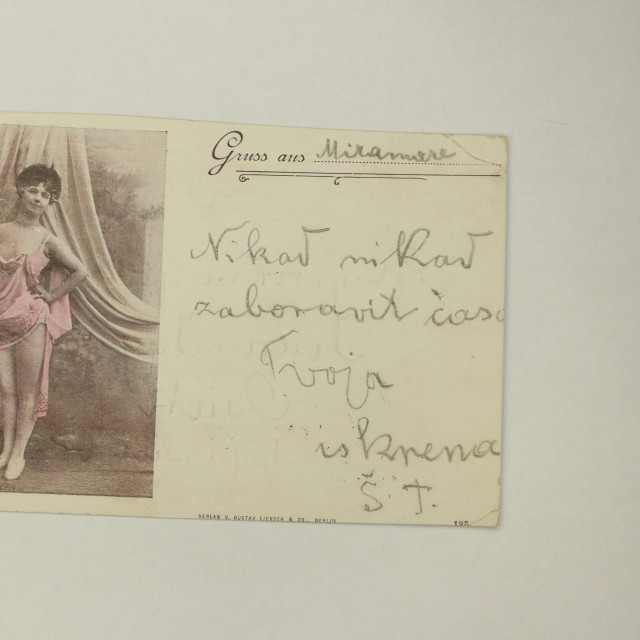 Gruss aus Miramare
Nikad nikad
zaboravit čas
Tvoja
iskrena
Š T.
VERLAG V. GUSTAV LIERSCH & CO., BERLIN